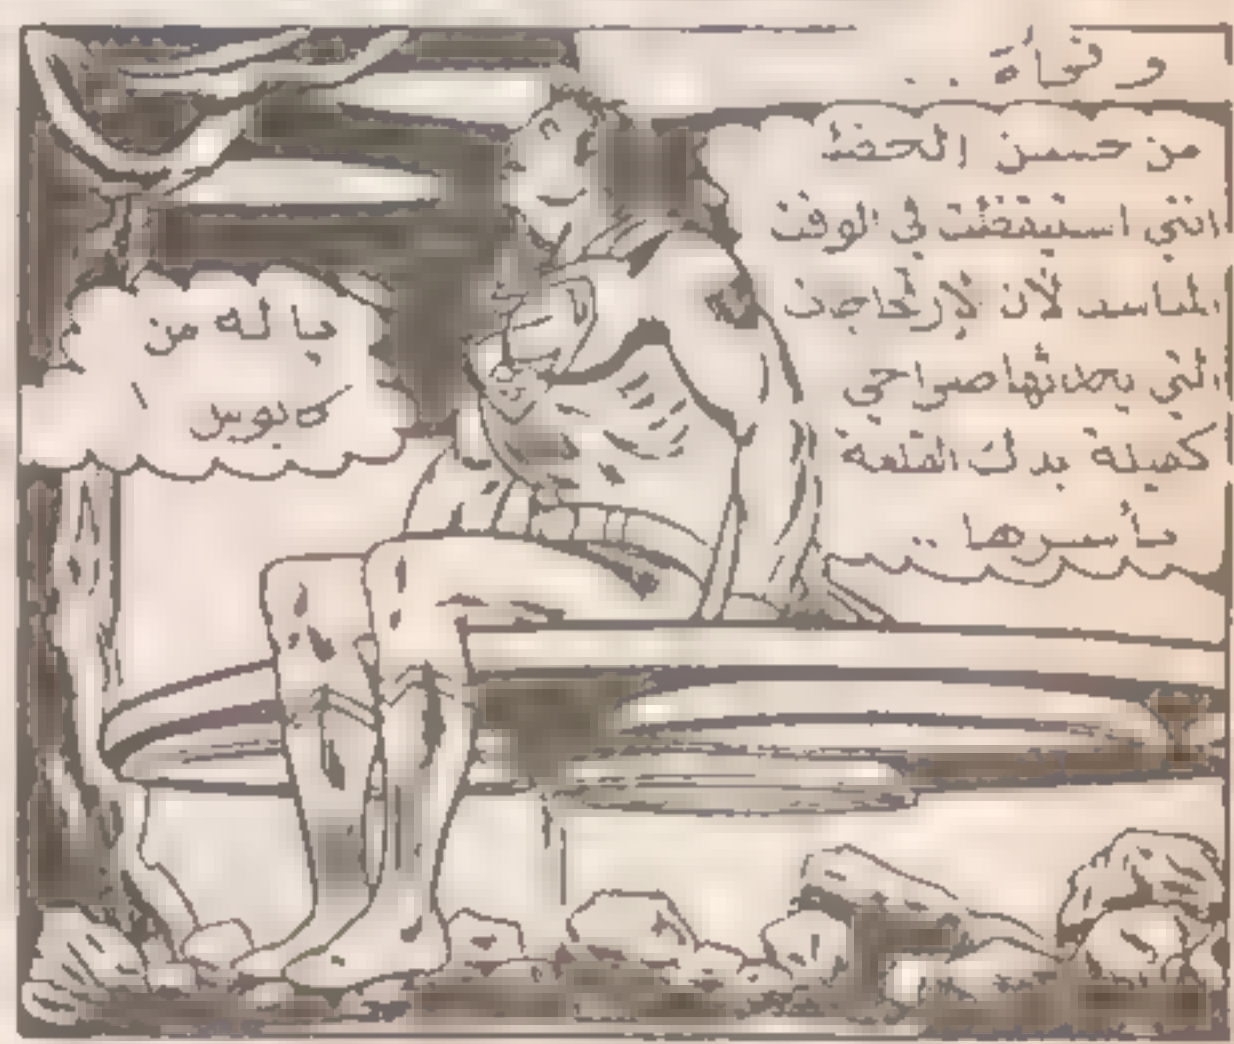 وفجأة..
من حسن الحظ
انني استيقظت في الوقت
المناسب لأن لإرتجاجات
التي يحدثها صراخي
كفيلة بدك القلعة
بأسرها..
يا له من
كابوس !